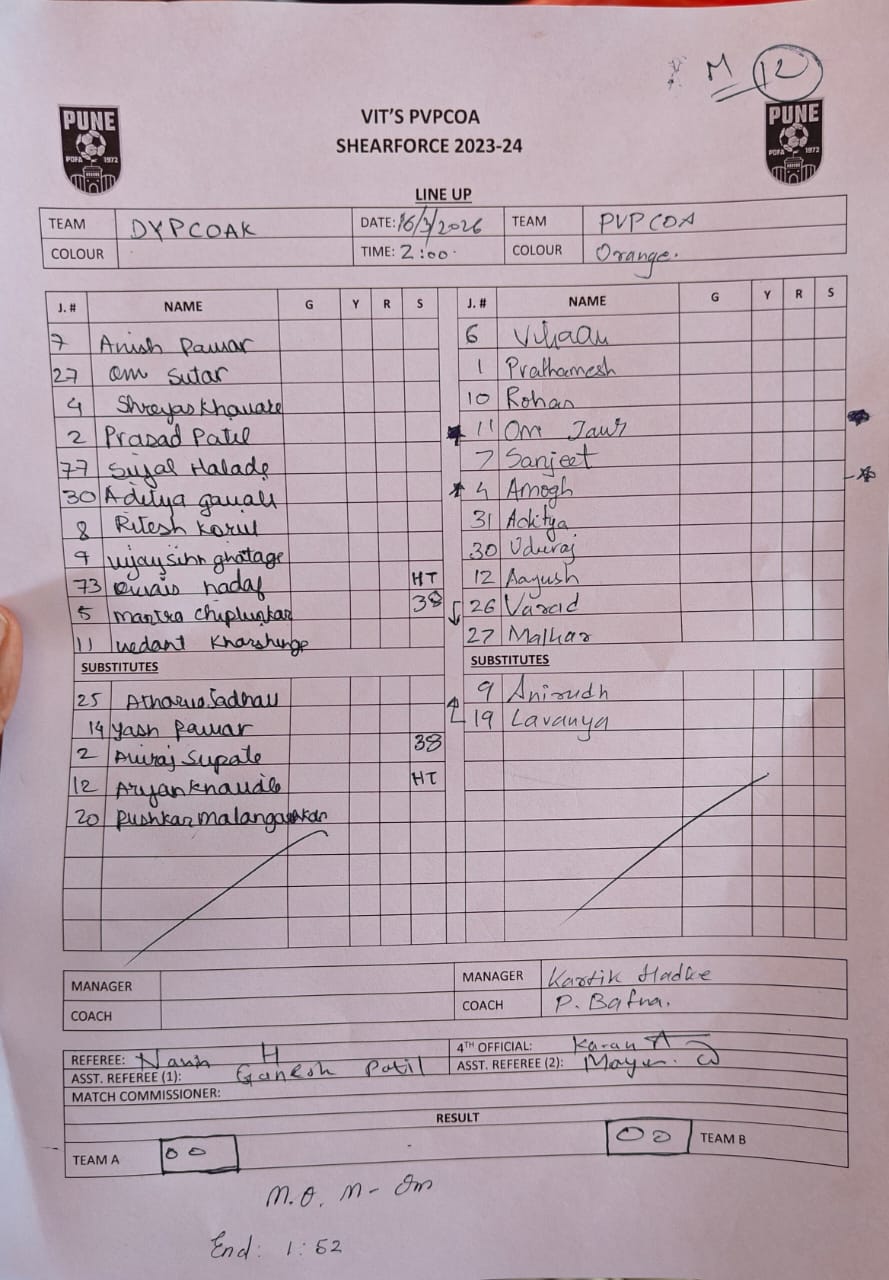 M 12
PUNE
PDFA 1972
PUNE
PDFA 1972
VIT'S PVPCOA
SHEARFORCE 2023-24
LINE UP
TEAM DYPCOAK DATE: 16/3/2026 TEAM PVPCOA
COLOUR TIME: 2:00 COLOUR Orange.
J. # NAME G Y R S J. # NAME G Y R S
7 Anish Pawar 6 Vihaan
27 Om Sutar 1 Prathamesh
4 Shreyas Khavare 10 Rohan
2 Prasad Patil 11 Om
77 Sujal Halade 7 Sanjeet
30 Aditya gavali 4 Amogh
8 Ritesh 31 Aditya
9 vijaysinh ghatage 30 Uduraj
73 nadaf HT 12 Aayush
5 mantra chiplunkar 38 26 Varad
11 vedant Kharshinge 27 Malhar
SUBSTITUTES SUBSTITUTES
25 Atharva Jadhav 9 Anirudh
14 Yash Pawar 19 Lavanya
2 Supate 38
12 Aryan HT
20 Pushkar
MANAGER MANAGER Kartik Hadke
COACH COACH P. Bafna.
REFEREE: H 4TH OFFICIAL: Karan A
ASST. REFEREE (1): Ganesh Patil ASST. REFEREE (2): Mayur.
MATCH COMMISSIONER:
RESULT
TEAM A 00 00 TEAM B
M.O. M - Om
End: 1:52